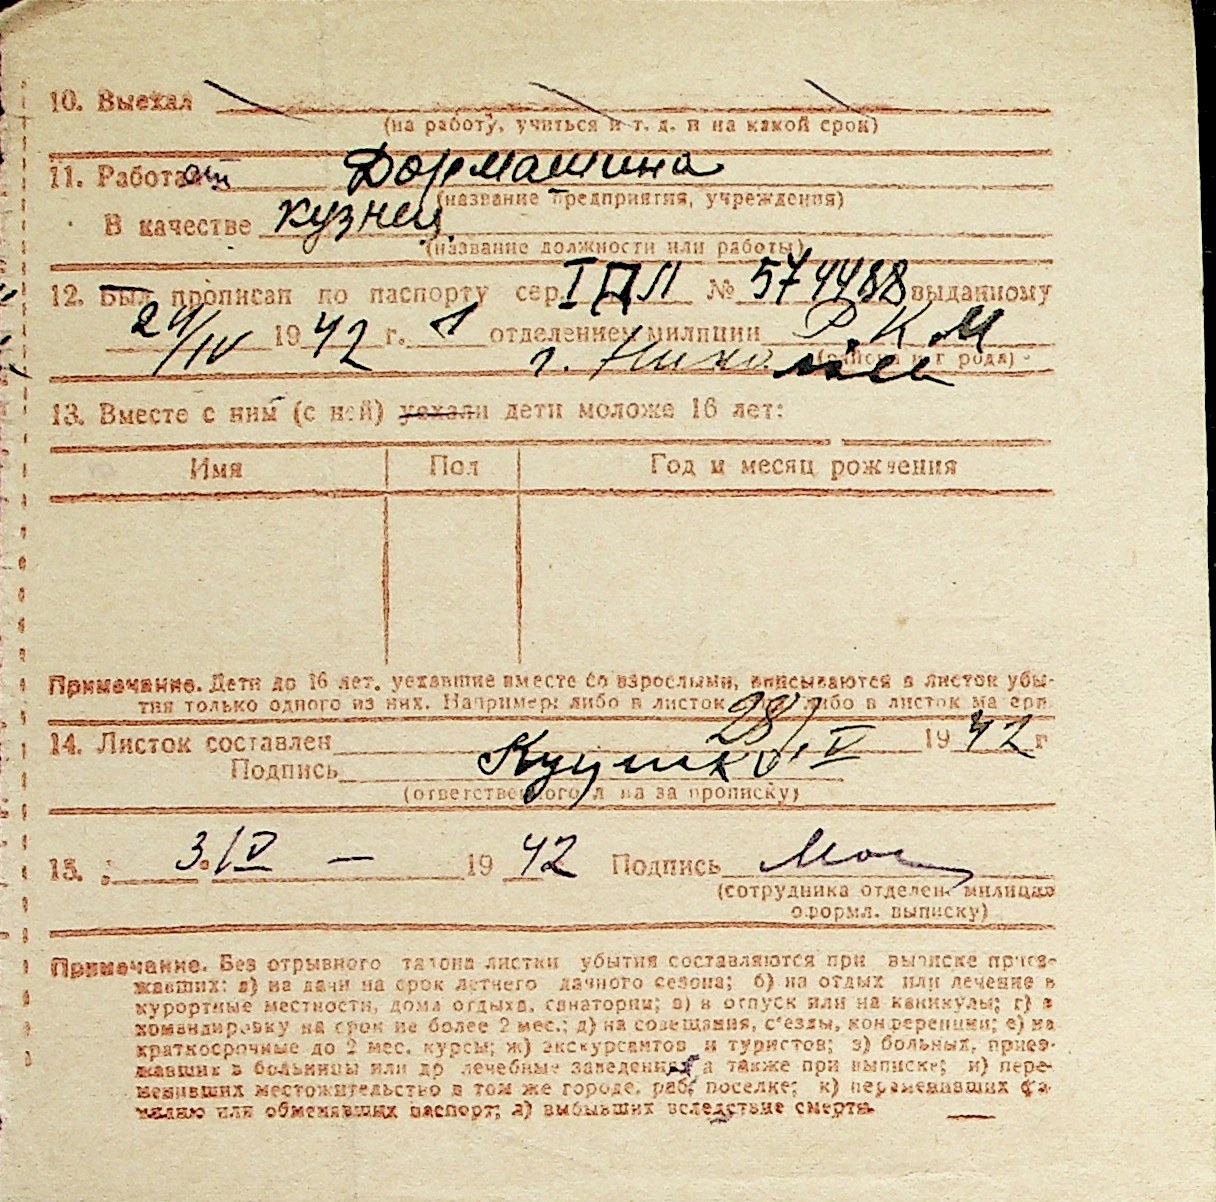 10. Выехал
(на работу, учиться и т. д. и на какой срок)
11. Работа Дормашина
(название предприятия, учреждения)
В качестве кузнец
(название должности или работы)
12. Был прописан по паспорту сер. I ДЛ № 574488 выданному
24/IV 1942 г. 1 отделением милиции Р.К.М
г. Николаев
13. Вместе с ним (с ней) уехали дети моложе 16 лет:
Имя Пол Год и месяц рождения
Примечание. Дети до 16 лет, уехавшие вместе со взрослыми, вписываются в листок убы-
тия только одного из них. Например: либо в листок либо в листок матери.
14. Листок составлен 28/V 1942 г
Подпись
(ответственного лица за прописку)
15. 3/V — 1942 Подпись
(сотрудника отделен. милиции
оформл. выписку)
Примечание. Без отрывного талона листки убытия составляются при выписке приез-
жавших: а) на дачи на срок летнего дачного сезона; б) на отдых или лечение в
курортные местности, дома отдыха, санатории; в) в отпуск или на каникулы; г) в
командировку на срок не более 2 мес.; д) на совещания, с'езды, конференции; е) на
краткосрочные до 2 мес. курсы; ж) экскурсантов и туристов; з) больных, приез-
жавших в больницы или др лечебные заведения, а также при выписке; и) пере-
менивших местожительство в том же городе, раб. поселке; к) переменивших фа-
милию или обменявших паспорт; л) выбывших вследствие смерти.